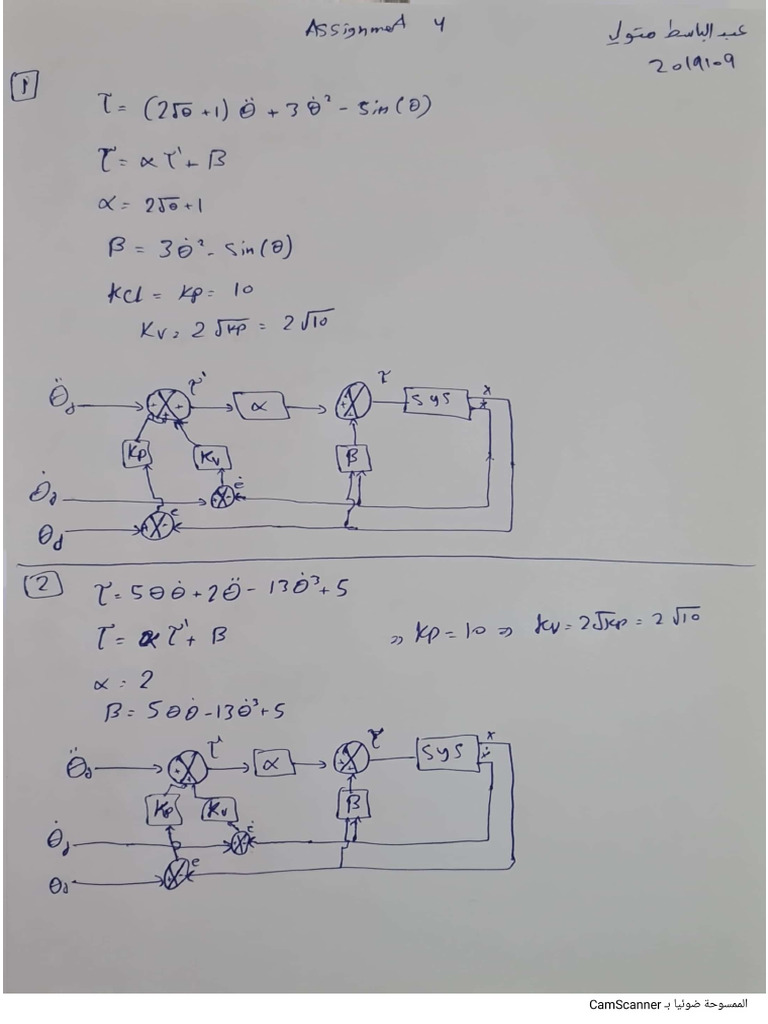 Assignment 4
عبد الباسط متولي
2019109
1
τ = (2√θ + 1) θ̈ + 3θ̇² - Sin(θ)
τ = α τ' + β
α = 2√θ + 1
β = 3θ̇² - Sin(θ)
Kcl = Kp = 10
Kv = 2√Kp = 2√10
θ̈d τ' α τ sys x ẋ
Kp Kv β
θ̇d ė
θd e
2
τ = 5θθ̇ + 2θ̈ - 13θ̇³ + 5
τ = α τ' + β ,, Kp = 10 ⇒ Kv = 2√Kp = 2√10
α = 2
β = 5θθ̇ - 13θ̇³ + 5
θ̈d τ' α τ sys x ẋ
Kp Kv β
θ̇d ė
θd e
الممسوحة ضوئيا بـ CamScanner